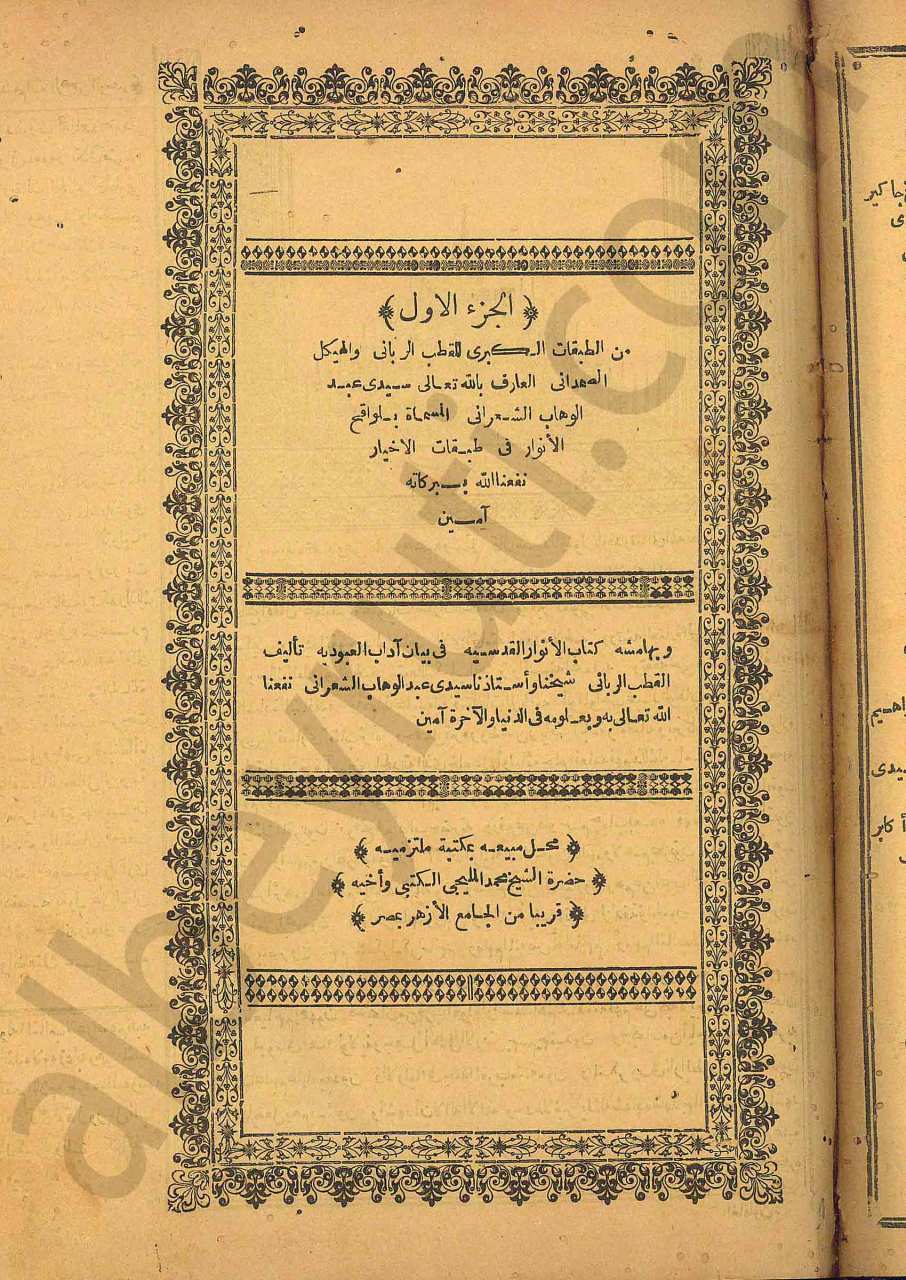 ﴿ الجزء الاول ﴾
من الطبقات الكبرى للقطب الربانى والهيكل
الصمدانى العارف بالله تعالى سيدى عبد
الوهاب الشعرانى المسماة بلواقح
الأنوار فى طبقات الاخيار
نفعنا الله ببركاته
آمين
وبهامشه كتاب الأنوار القدسيه فى بيان آداب العبوديه تأليف
القطب الربانى شيخنا وأستاذنا سيدى عبد الوهاب الشعرانى نفعنا
الله تعالى به وبعلومه فى الدنيا والآخرة آمين
﴿ محل مبيعه بمكتبة ملتزميه ﴾
﴿ حضرة الشيخ محمد المليجى الكتبى وأخيه ﴾
﴿ قريبا من الجامع الأزهر بمصر ﴾
جاكير
سيدى
albeyruti.com